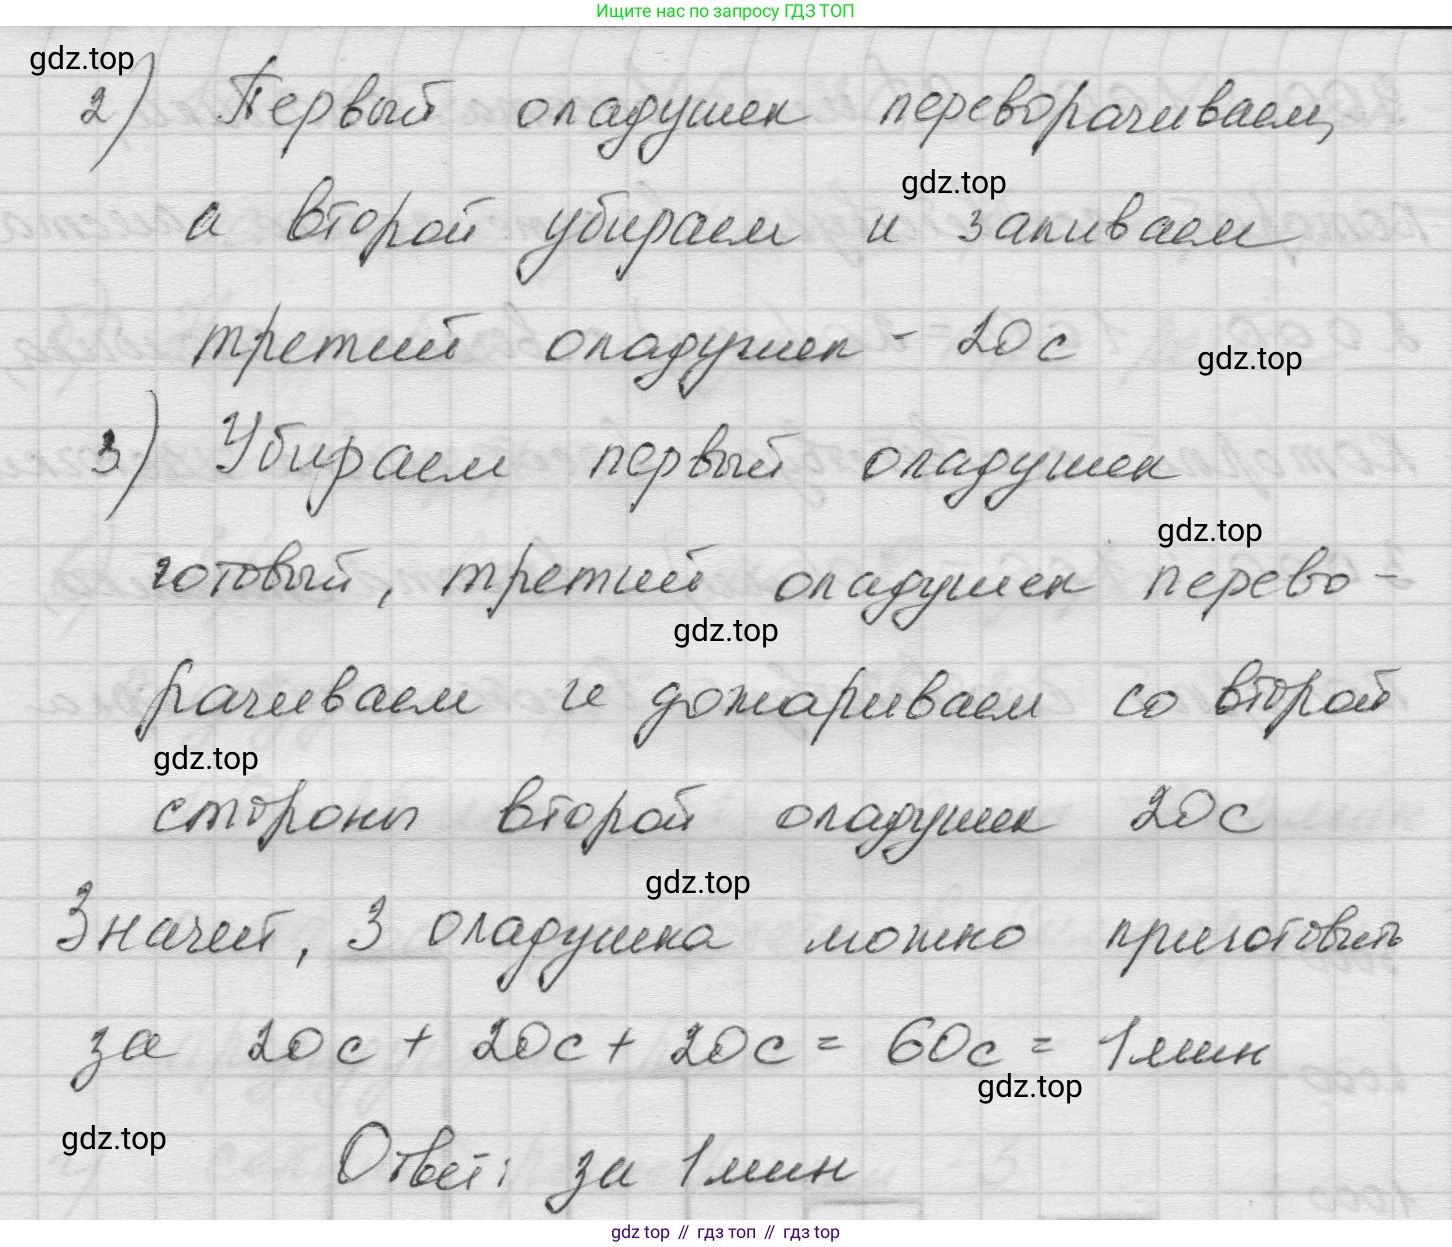 Ищите нас по запросу ГДЗ ТОП
gdz.top
2) Первый оладушек переворачиваем,
gdz.top
а второй убираем и
третий оладушек - 20 с
gdz.top
3) Убираем первый оладушек
gdz.top
готовый, третий оладушек перево-
gdz.top
рачиваем и дожариваем со второй
gdz.top
стороны второй оладушек 20 с
gdz.top
Значит, 3 оладушка можно приготовить
за 20 с + 20 с + 20 с = 60 с = 1 мин
gdz.top
gdz.top
Ответ: за 1 мин
gdz top // гдз топ // гдз top